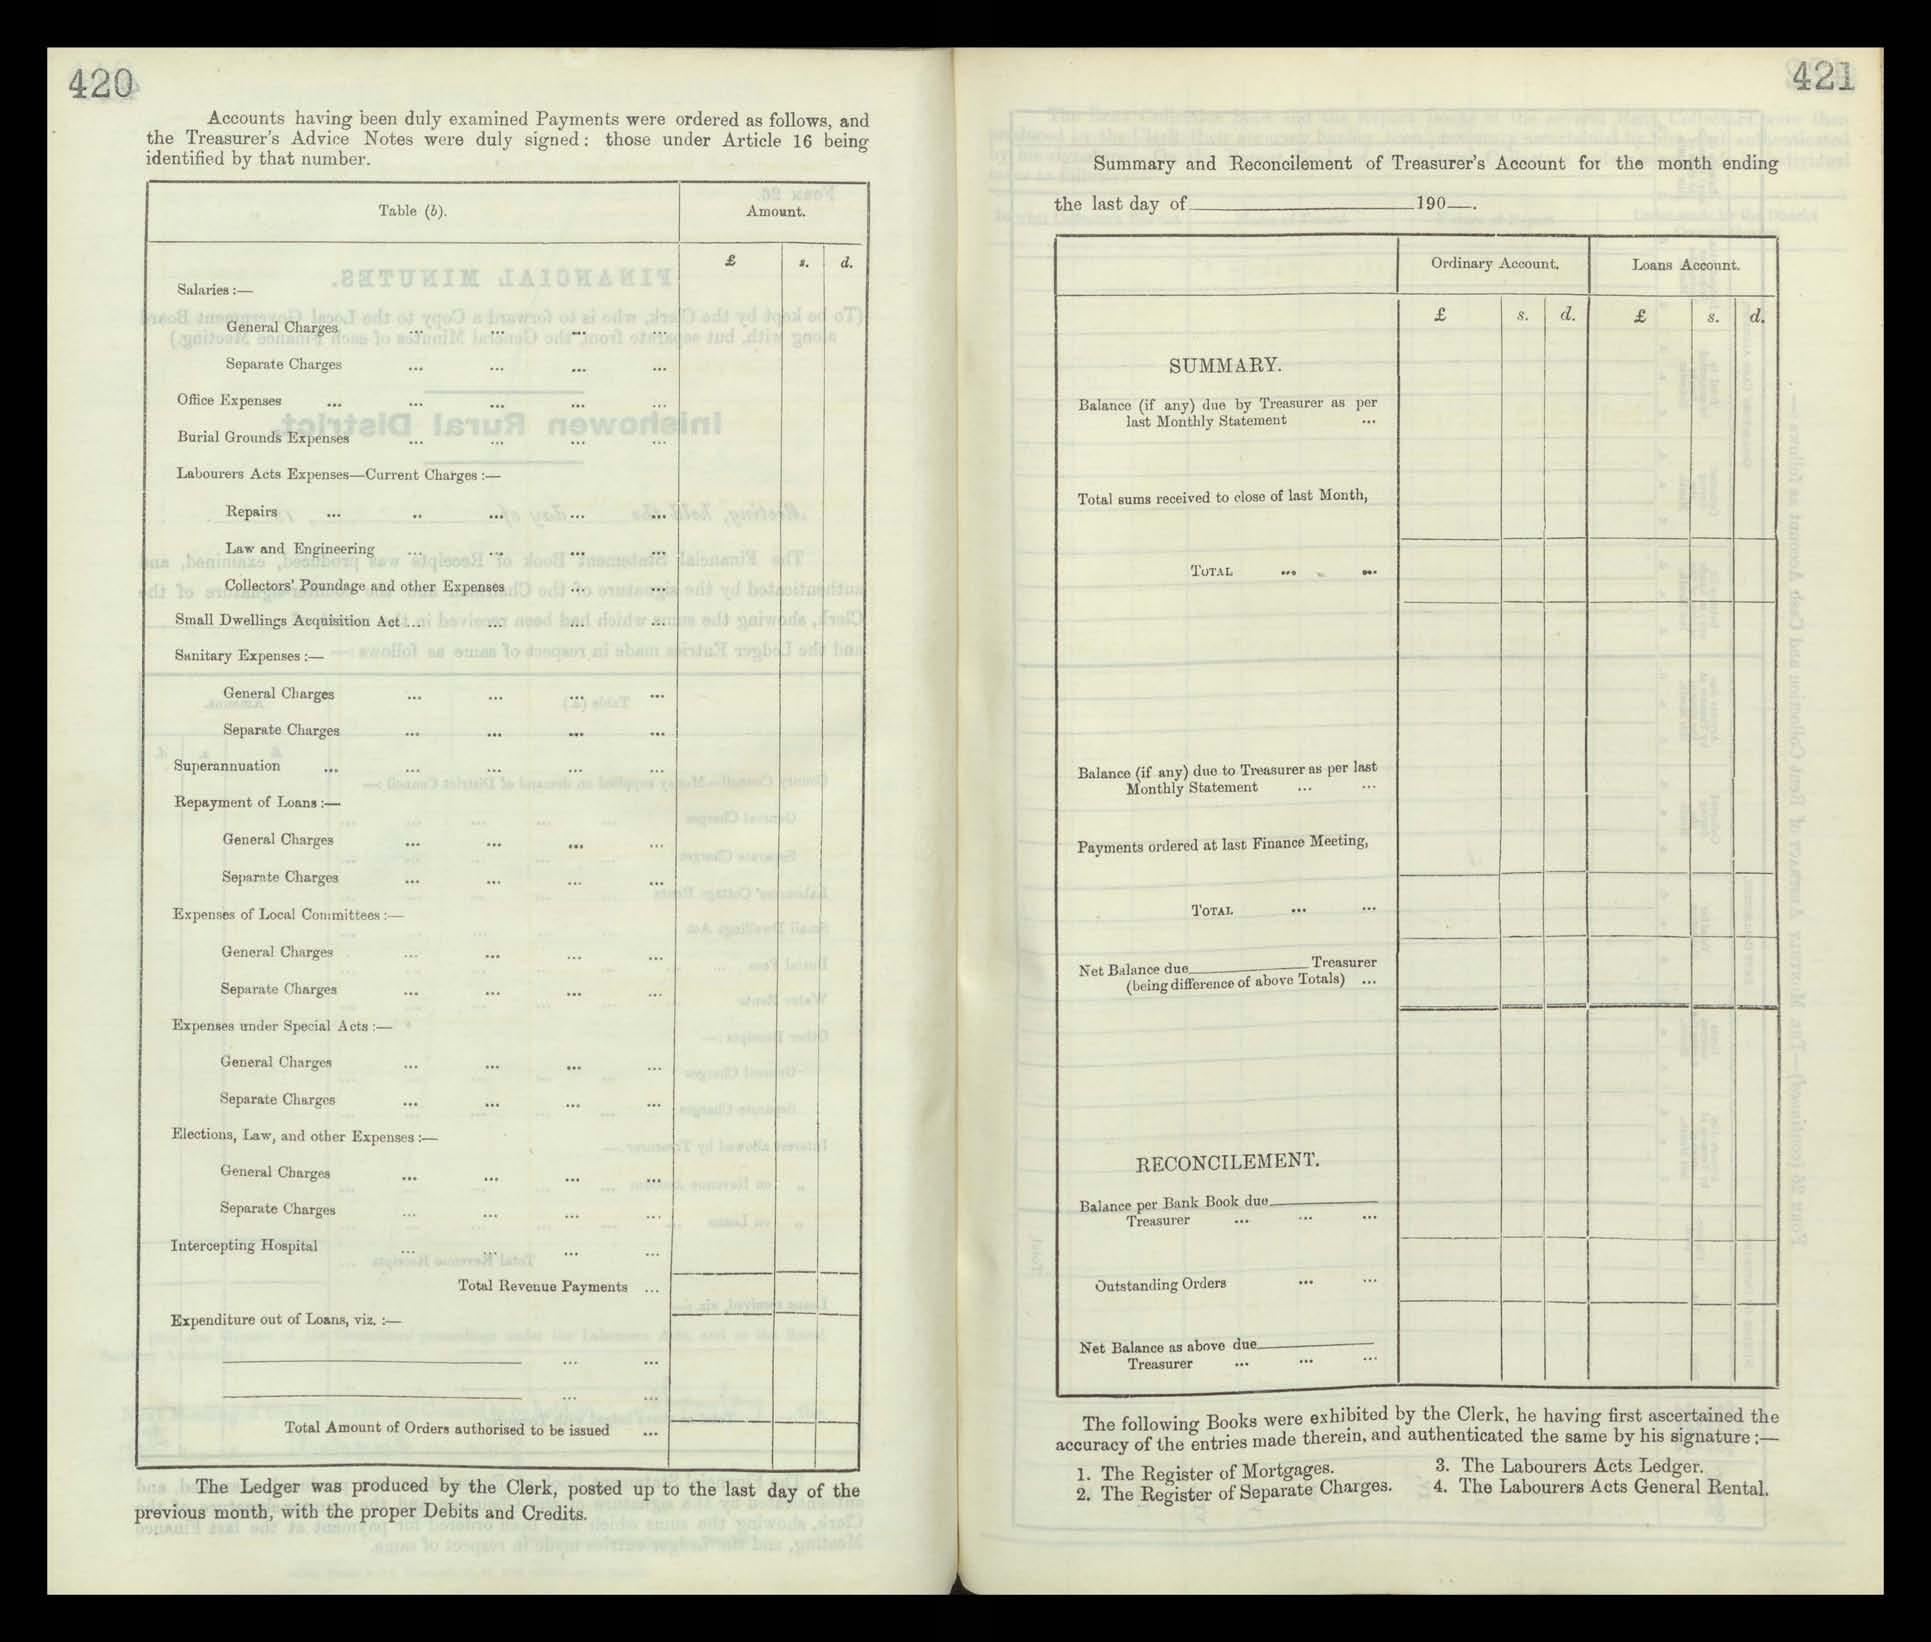 420
Accounts having been duly examined Payments were ordered as follows, and
the Treasurer's Advice Notes were duly signed: those under Article 16 being
identified by that number.
Table (b). Amount.
£ s. d.
Salaries :—
General Charges ... ... ... ...
Separate Charges ... ... ... ...
Office Expenses ... ... ... ... ...
Burial Grounds Expenses ... ... ... ...
Labourers Acts Expenses—Current Charges :—
Repairs ... .. ... ... ...
Law and Engineering ... ... ... ...
Collectors' Poundage and other Expenses ... ...
Small Dwellings Acquisition Act ... ... ... ...
Sanitary Expenses :—
General Charges ... ... ... ...
Separate Charges ... ... ... ...
Superannuation ... ... ... ... ...
Repayment of Loans :—
General Charges ... ... ... ...
Separate Charges ... ... ... ...
Expenses of Local Committees :—
General Charges ... ... ... ...
Separate Charges ... ... ... ...
Expenses under Special Acts :—
General Charges ... ... ... ...
Separate Charges ... ... ... ...
Elections, Law, and other Expenses :—
General Charges ... ... ... ...
Separate Charges ... ... ... ...
Intercepting Hospital ... ... ... ...
Total Revenue Payments ...
Expenditure out of Loans, viz. :—
... ...
... ...
Total Amount of Orders authorised to be issued ...
The Ledger was produced by the Clerk, posted up to the last day of the
previous month, with the proper Debits and Credits.
421
Summary and Reconcilement of Treasurer's Account for the month ending
the last day of 190 .
Ordinary Account. Loans Account.
£ s. d. £ s. d.
SUMMARY.
Balance (if any) due by Treasurer as per
last Monthly Statement ...
Total sums received to close of last Month,
TOTAL ... ...
Balance (if any) due to Treasurer as per last
Monthly Statement ... ...
Payments ordered at last Finance Meeting,
TOTAL ... ...
Net Balance due Treasurer
(being difference of above Totals) ...
RECONCILEMENT.
Balance per Bank Book due
Treasurer ... ... ...
Outstanding Orders ... ...
Net Balance as above due
Treasurer ... ... ...
The following Books were exhibited by the Clerk, he having first ascertained the
accuracy of the entries made therein, and authenticated the same by his signature :—
1. The Register of Mortgages. 3. The Labourers Acts Ledger.
2. The Register of Separate Charges. 4. The Labourers Acts General Rental.